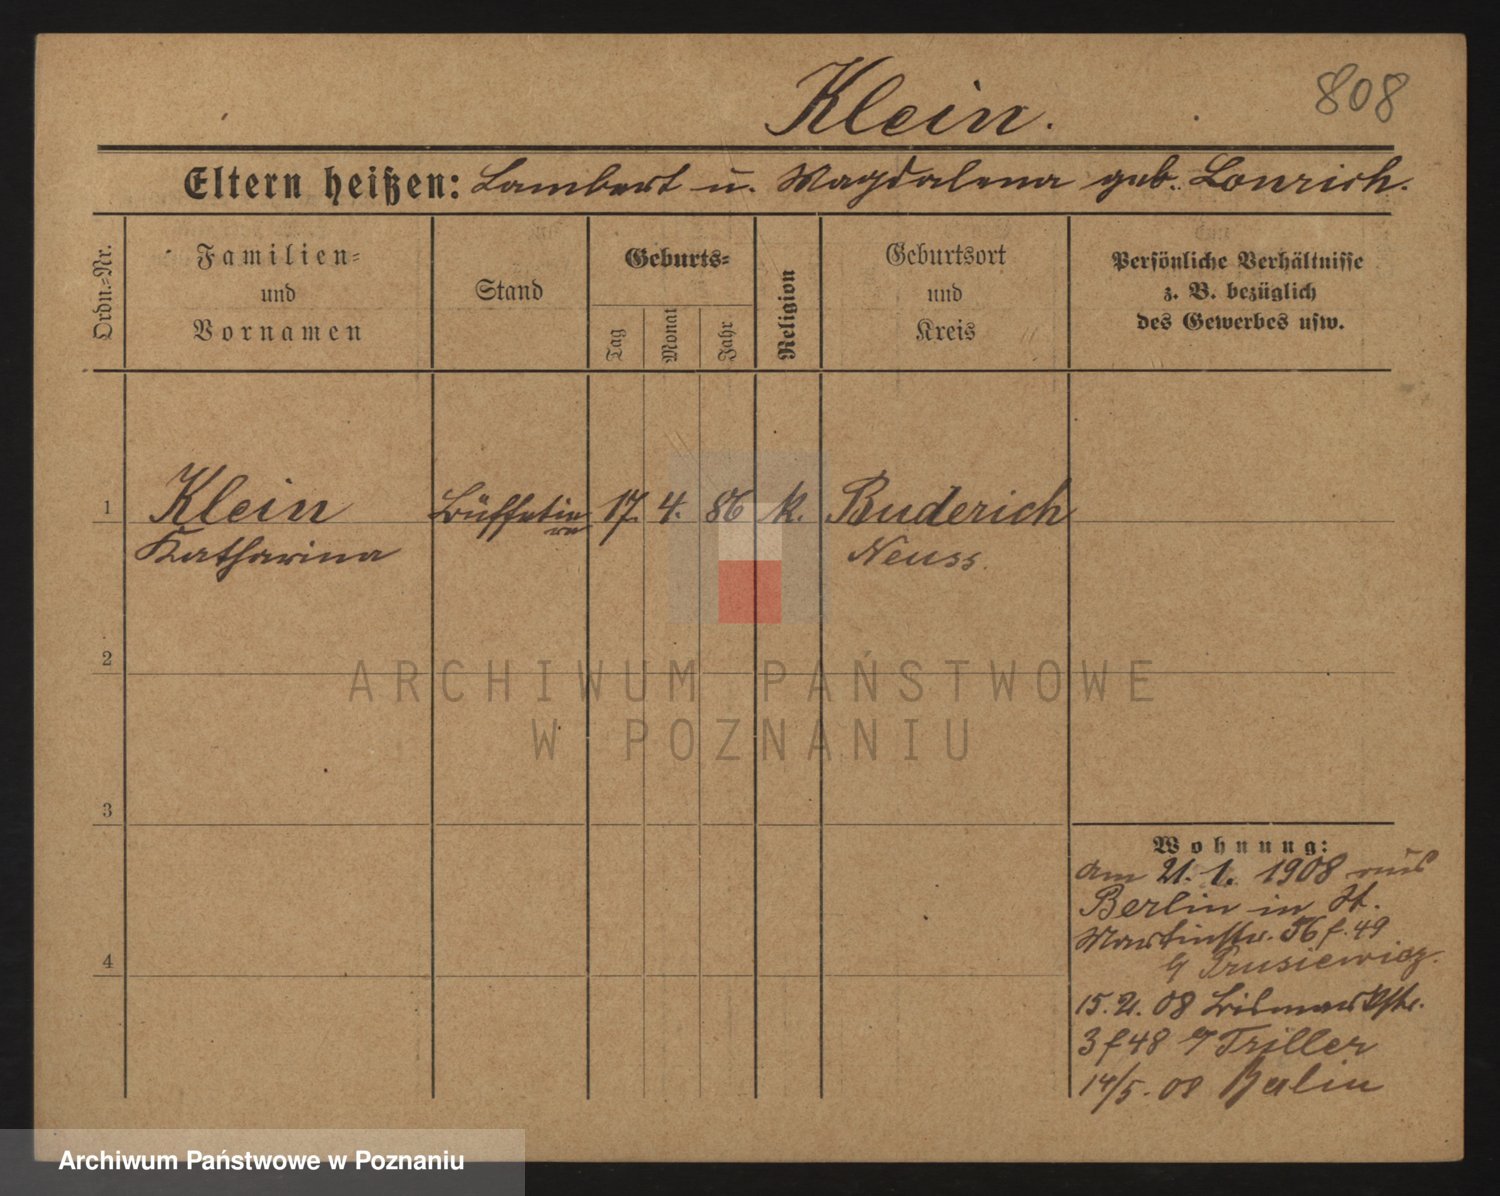 Klein.
808
Eltern heißen: Lambert u. Magdalena geb. Lonrich.
Ordn.-Nr.
Familien-
und
Vornamen
Stand
Geburts-
Tag
Monat
Jahr
Religion
Geburtsort
und
Kreis
Persönliche Verhältnisse
z. B. bezüglich
des Gewerbes usw.
1
Klein
Katharina
Büffetie
re
17. 4. 86
k.
Buderich
Neuss.
2
ARCHIWUM PAŃSTWOWE
W POZNANIU
3
4
Wohnung:
am 21. 1. 1908 aus
Berlin in St.
Martinstr. 56 f. 49
Prusiewicz.
15. 2. 08 Bismarckstr.
3 f 48 Triller
14/5. 08 Berlin
Archiwum Państwowe w Poznaniu